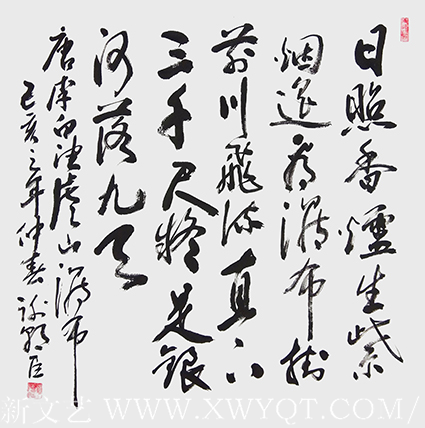 日照香爐生紫
烟遥看瀑布掛
前川飛流直下
三千尺疑是銀
河落九天
唐李白望廬山瀑布
己亥之年仲春
新文艺 WWW.XWYQT.COM/